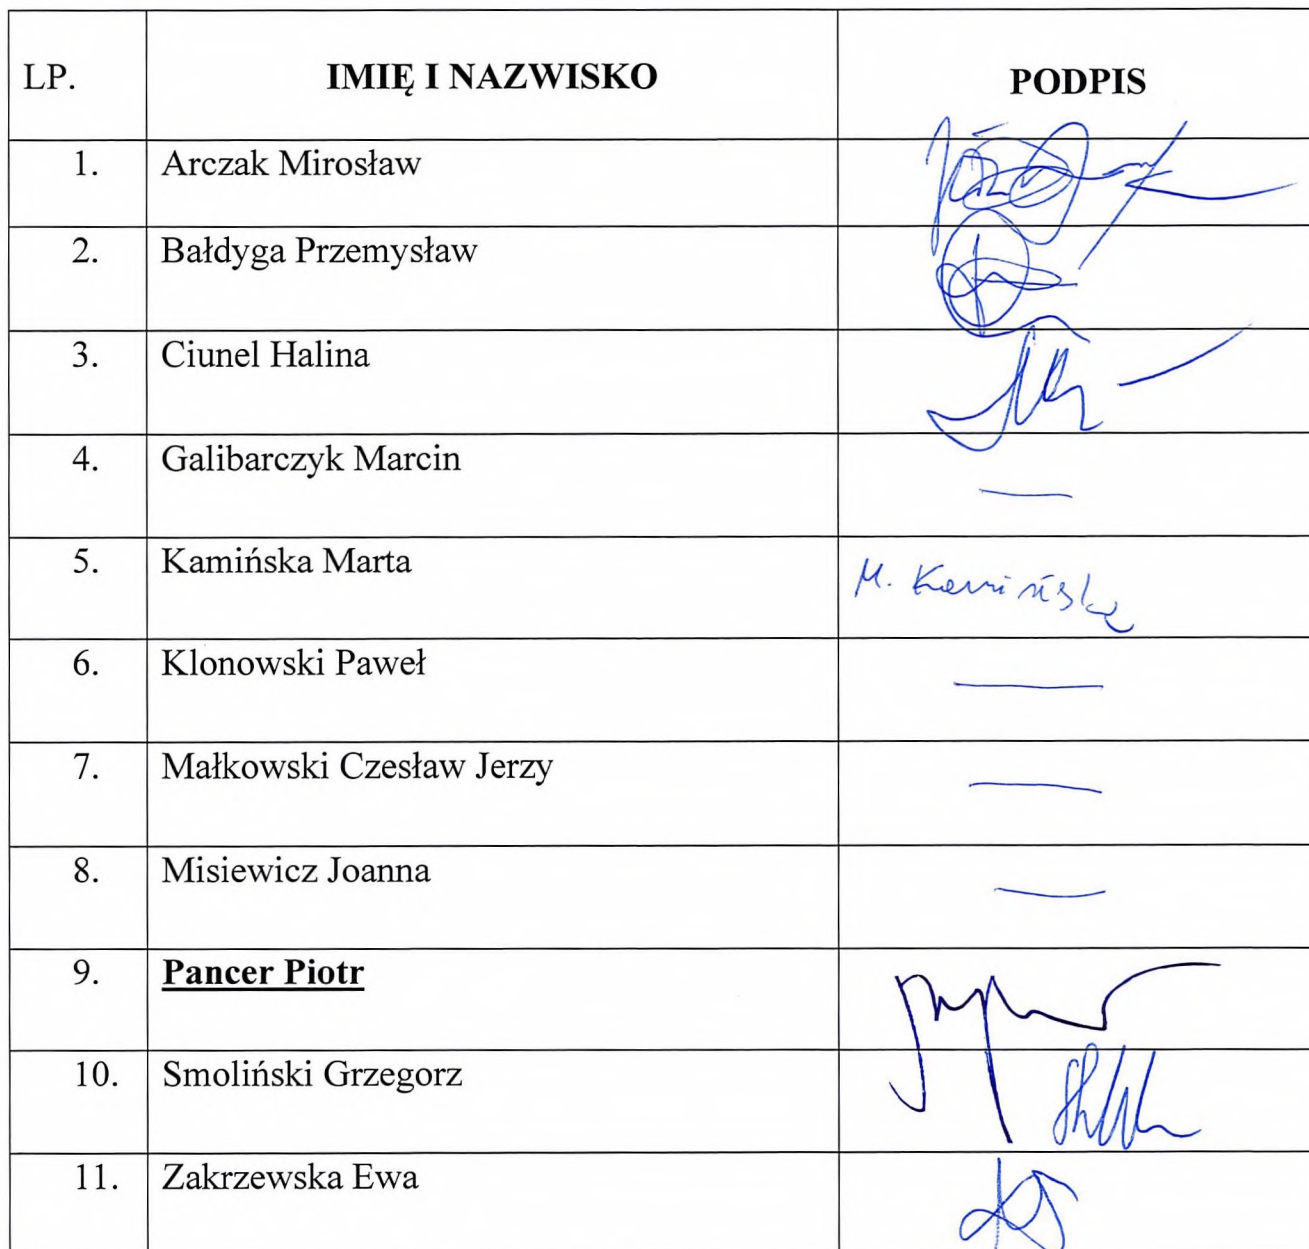 LP. IMIĘ I NAZWISKO PODPIS
1. Arczak Mirosław
2. Bałdyga Przemysław
3. Ciunel Halina
4. Galibarczyk Marcin —
5. Kamińska Marta M. Kamińska
6. Klonowski Paweł —
7. Małkowski Czesław Jerzy —
8. Misiewicz Joanna —
9. Pancer Piotr
10. Smoliński Grzegorz
11. Zakrzewska Ewa